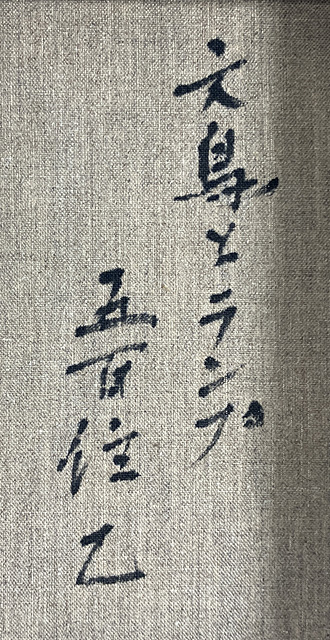 文鳥とランプ
五百住乙